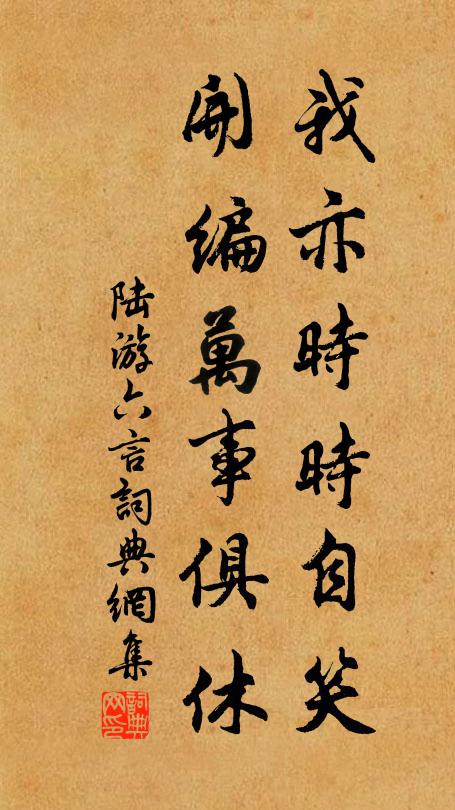 我亦時時自笑
開編萬事俱休
陸游六言詞典網集
詞典网印